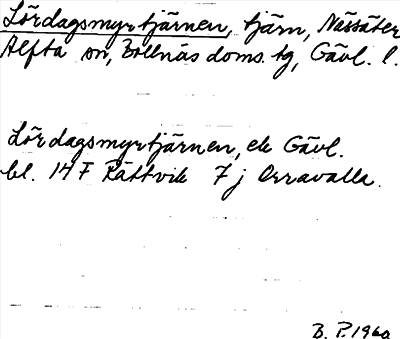 Lördagsmyrtjärnen, tjärn, Nässäter
Alfta sn, Bollnäs doms. tg, Gävl. l.
Lördagsmyrtjärnen, ek Gävl.
bl. 14 F Rättvik 7 j Orravalla.
B. P. 1960